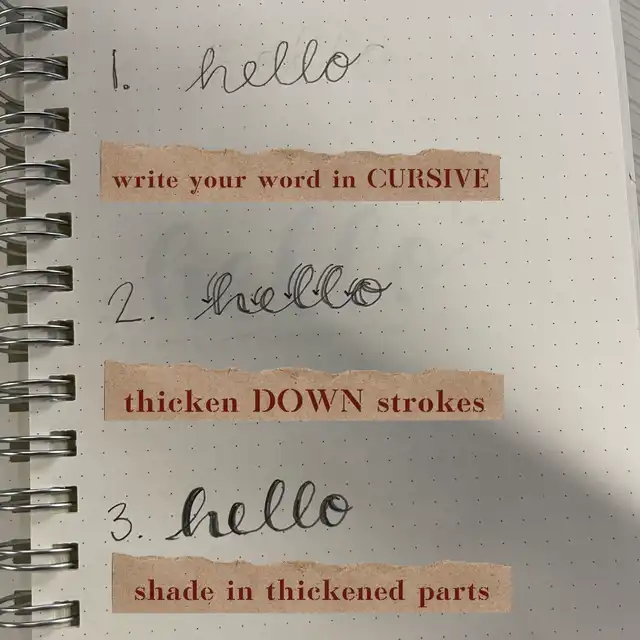 1. hello
write your word in CURSIVE
2. hello
thicken DOWN strokes
3. hello
shade in thickened parts